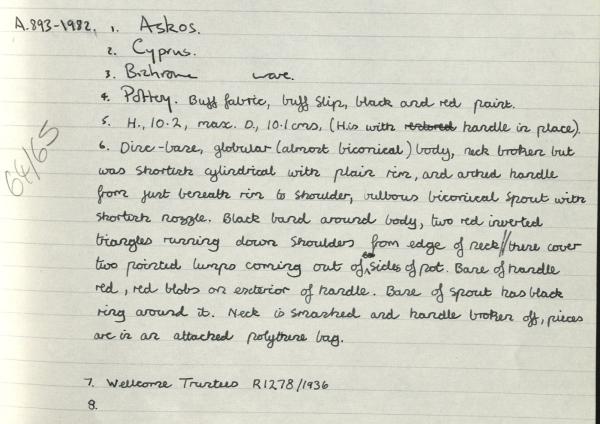 A.893-1982. 1. Askos.
2. Cyprus.
3. Bichrome ware.
4. Pottery. Buff fabric, buff slip, black and red paint.
5. H., 10.2, max. D., 10.1 cms, (H. is with restored handle in place).
6. Disc-base, globular (almost biconical) body, neck broken but
was shortish cylindrical with plain rim, and arched handle
from just beneath rim to shoulder, bulbous biconical spout with
shortish nozzle. Black band around body, two red inverted
triangles running down shoulders from edge of neck // these cover
two pointed lumps coming out of sides of pot. Base of handle
red, red blobs on exterior of handle. Base of spout has black
ring around it. Neck is smashed and handle broken off, pieces
are in an attached polythene bag.
64/65
7. Wellcome Trustees R1278/1936
8.